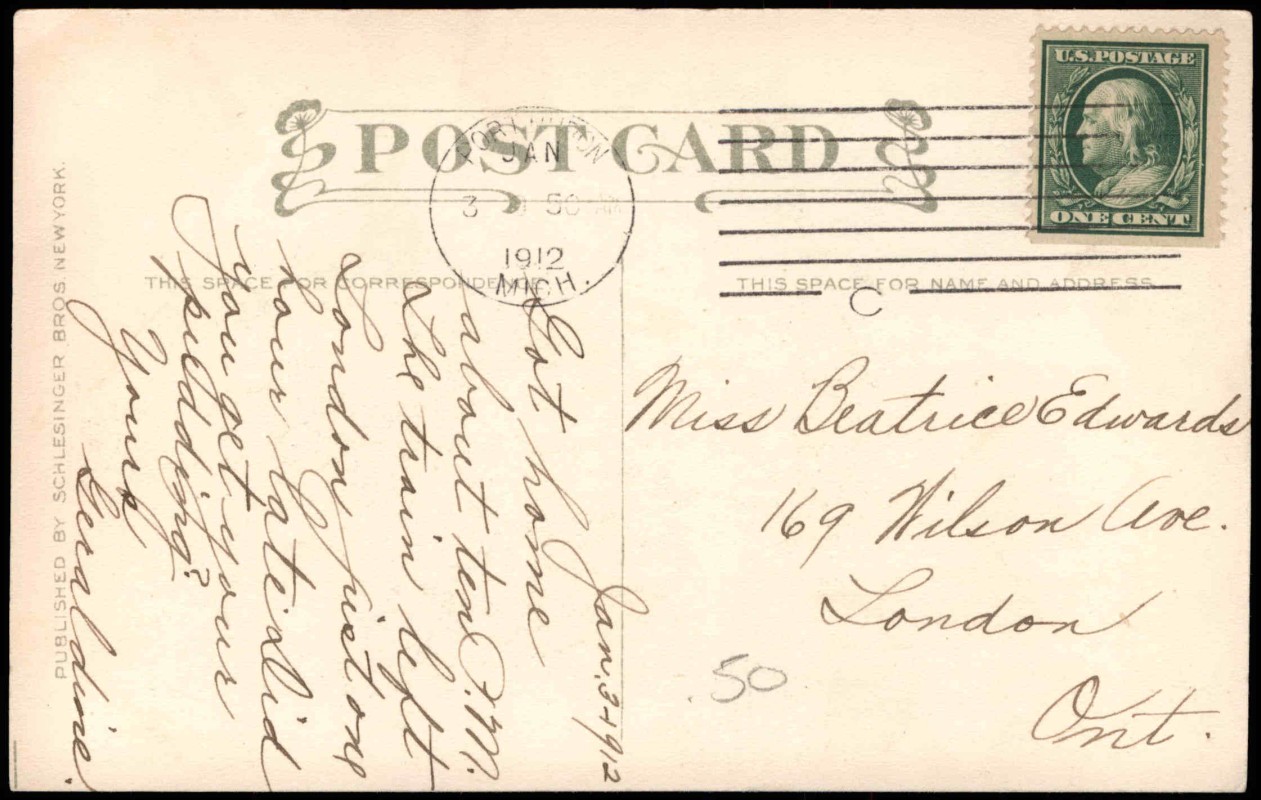 POST CARD
U.S. POSTAGE
ONE CENT
PORT HURON
JAN
3
1912
MICH.
C
THIS SPACE FOR CORRESPONDENCE
THIS SPACE FOR NAME AND ADDRESS
PUBLISHED BY SCHLESINGER BROS. NEW YORK.
Jan. 3-1912
Got home
about ten P.M.
The train left
London just one
hour late. Did
you get your
pudding?
Yours
Geraldine
Miss Beatrice Edwards
169 Wilson Ave.
London
Ont.
.50